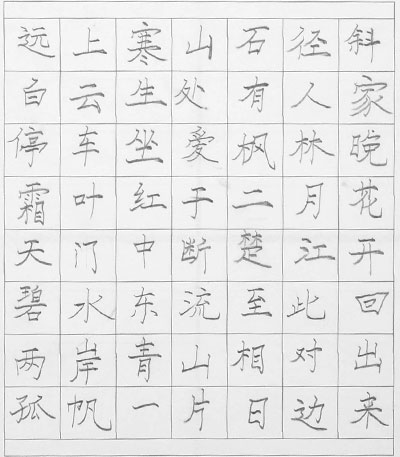 远上寒山石径斜
白云生处有人家
停车坐爱枫林晚
霜叶红于二月花
天门中断楚江开
碧水东流至此回
两岸青山相对出
孤帆一片日边来